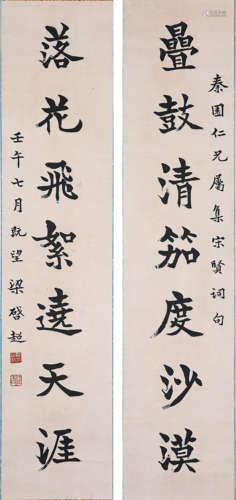 疊鼓清笳度沙漠
秦国仁兄屬集宋賢词句
落花飛絮遶天涯
壬午七月既望梁啓超